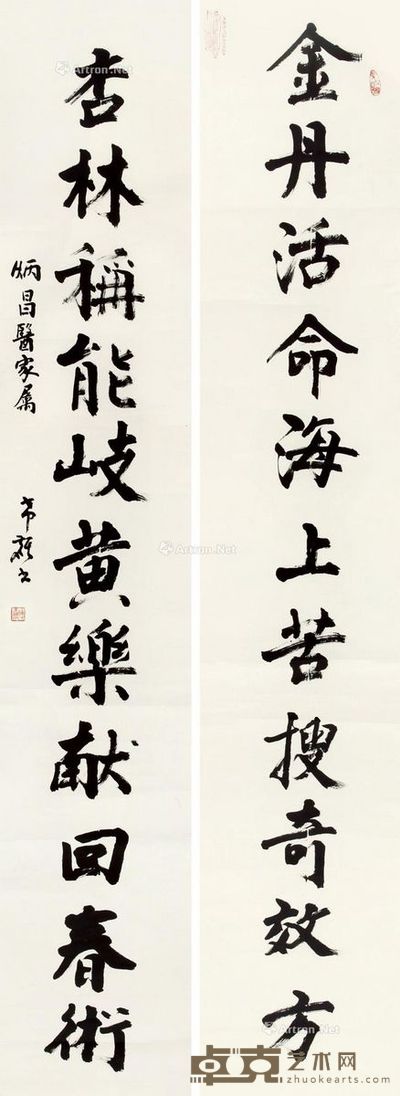 金丹活命海上苦搜奇效方
杏林稱能岐黄樂献回春術
炳昌醫家属
Artron.Net
Artron.Net
Artron.Net
卓克艺术网
zhuokearts.com